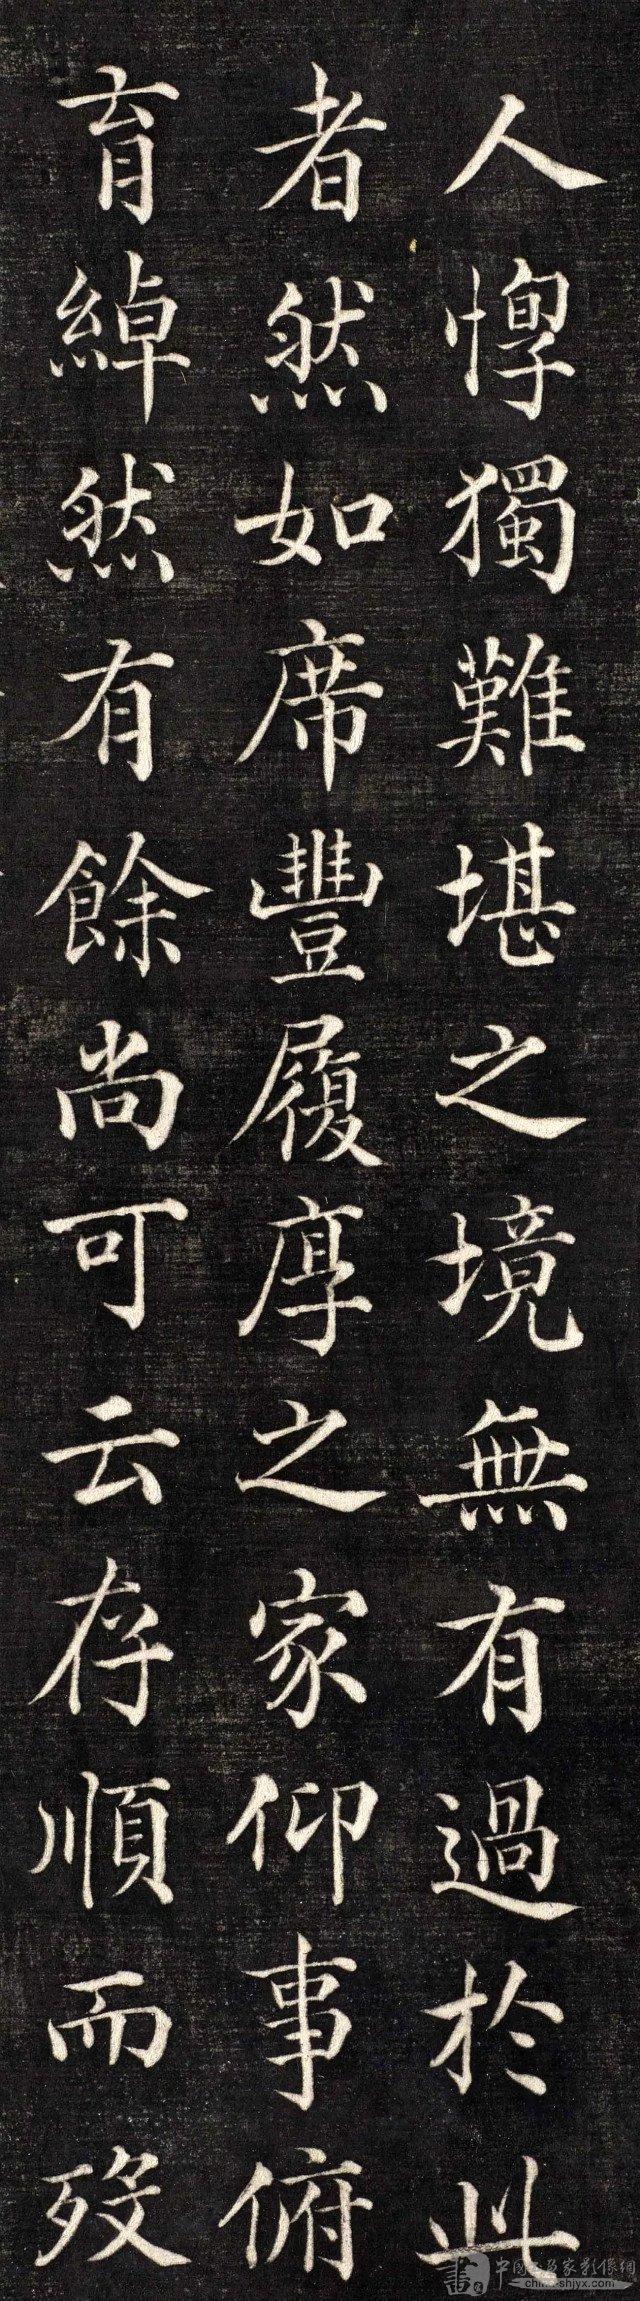 人惸獨難堪之境無有過於此
者然如席豐履厚之家仰事俯
育綽然有餘尚可云存順而歿
書 中國書画家影像網
china-shjyx.com